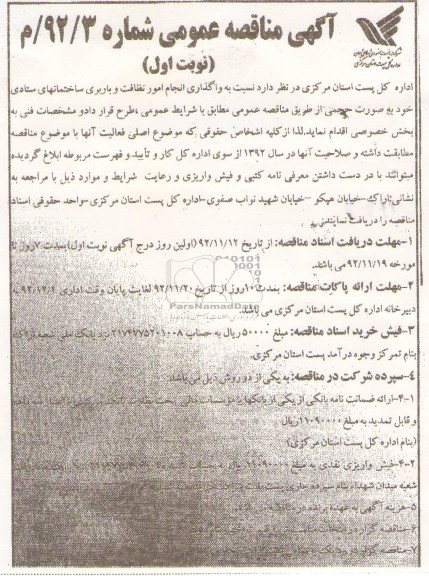 آگهی مناقصه عمومی شماره ۹۲/۳/م
(نوبت اول)
اداره کل پست استان مرکزی در نظر دارد نسبت به واگذاری انجام امور نظافت و باربری ساختمانهای ستادی
خود به صورت حجمی از طریق مناقصه عمومی مطابق با شرایط عمومی ،طرح قرار دادو مشخصات فنی به
بخش خصوصی اقدام نماید.لذا ازکلیه اشخاص حقوقی که موضوع اصلی فعالیت آنها با موضوع مناقصه
مطابقت داشته و صلاحیت آنها در سال ۱۳۹۲ از سوی اداره کل کار و تأیید و فهرست مربوطه ابلاغ گردیده
میتوانند با در دست داشتن معرفی نامه کتبی و فیش واریزی و رعایت شرایط و موارد ذیل با مراجعه به
نشانی:اراک-خیابان هپکو -خیابان شهید نواب صفوی-اداره کل پست استان مرکزی-واحد حقوقی اسناد
مناقصه را دریافت نمایند.
۱-مهلت دریافت اسناد مناقصه: از تاریخ ۹۲/۱۱/۱۲ (اولین روز درج آگهی نوبت اول)بمدت ۷روز تا
مورخه ۹۲/۱۱/۱۹ می باشد.
۲-مهلت ارائه پاکات مناقصه: بمدت ۱۰روز از تاریخ ۹۲/۱۱/۲۰ لغایت پایان وقت اداری ۹۲/۱۲/۱ به
دبیرخانه اداره کل پست استان مرکزی می باشد.
۳-فیش خرید اسناد مناقصه: مبلغ ۵۰۰۰۰ ریال به حساب ۲۱۷۴۷۷۵۲۰۱۰۰۸ نزد بانک ملی شعبه اراک
بنام تمرکز وجوه درآمد پست استان مرکزی.
۴-سپرده شرکت در مناقصه: به یکی از دو روش ذیل می باشد
۴-۱-ارائه ضمانت نامه بانکی از یکی از بانکها یا مؤسسات مالی
و قابل تمدید به مبلغ ۱۱۰۹۰۰۰۰ریال
(بنام اداره کل پست استان مرکزی)
۴-۲-فیش واریزی نقدی به مبلغ ۱۱۰۹۰۰۰۰ ریال به حساب
شعبه میدان شهداء بنام سپرده جاری پست
۵-هزینه آگهی به عهده برنده مناقصه
۶-مناقصه گزار
۷-مناقصه گزار
ParsNamadData